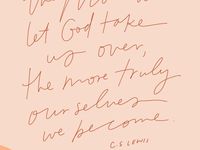 let God take
us over,
the more truly
ourselves
we become.
C.S. LEWIS